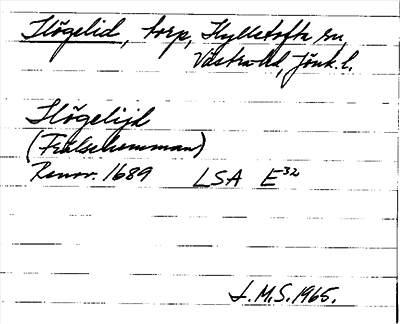 Högelid, torp, Kyllestofta sn,
Västra hd, Jönk. l.
Högelijd
(Frälsehemman)
Renov. 1689 LSA E³²
J.M.S. 1965.